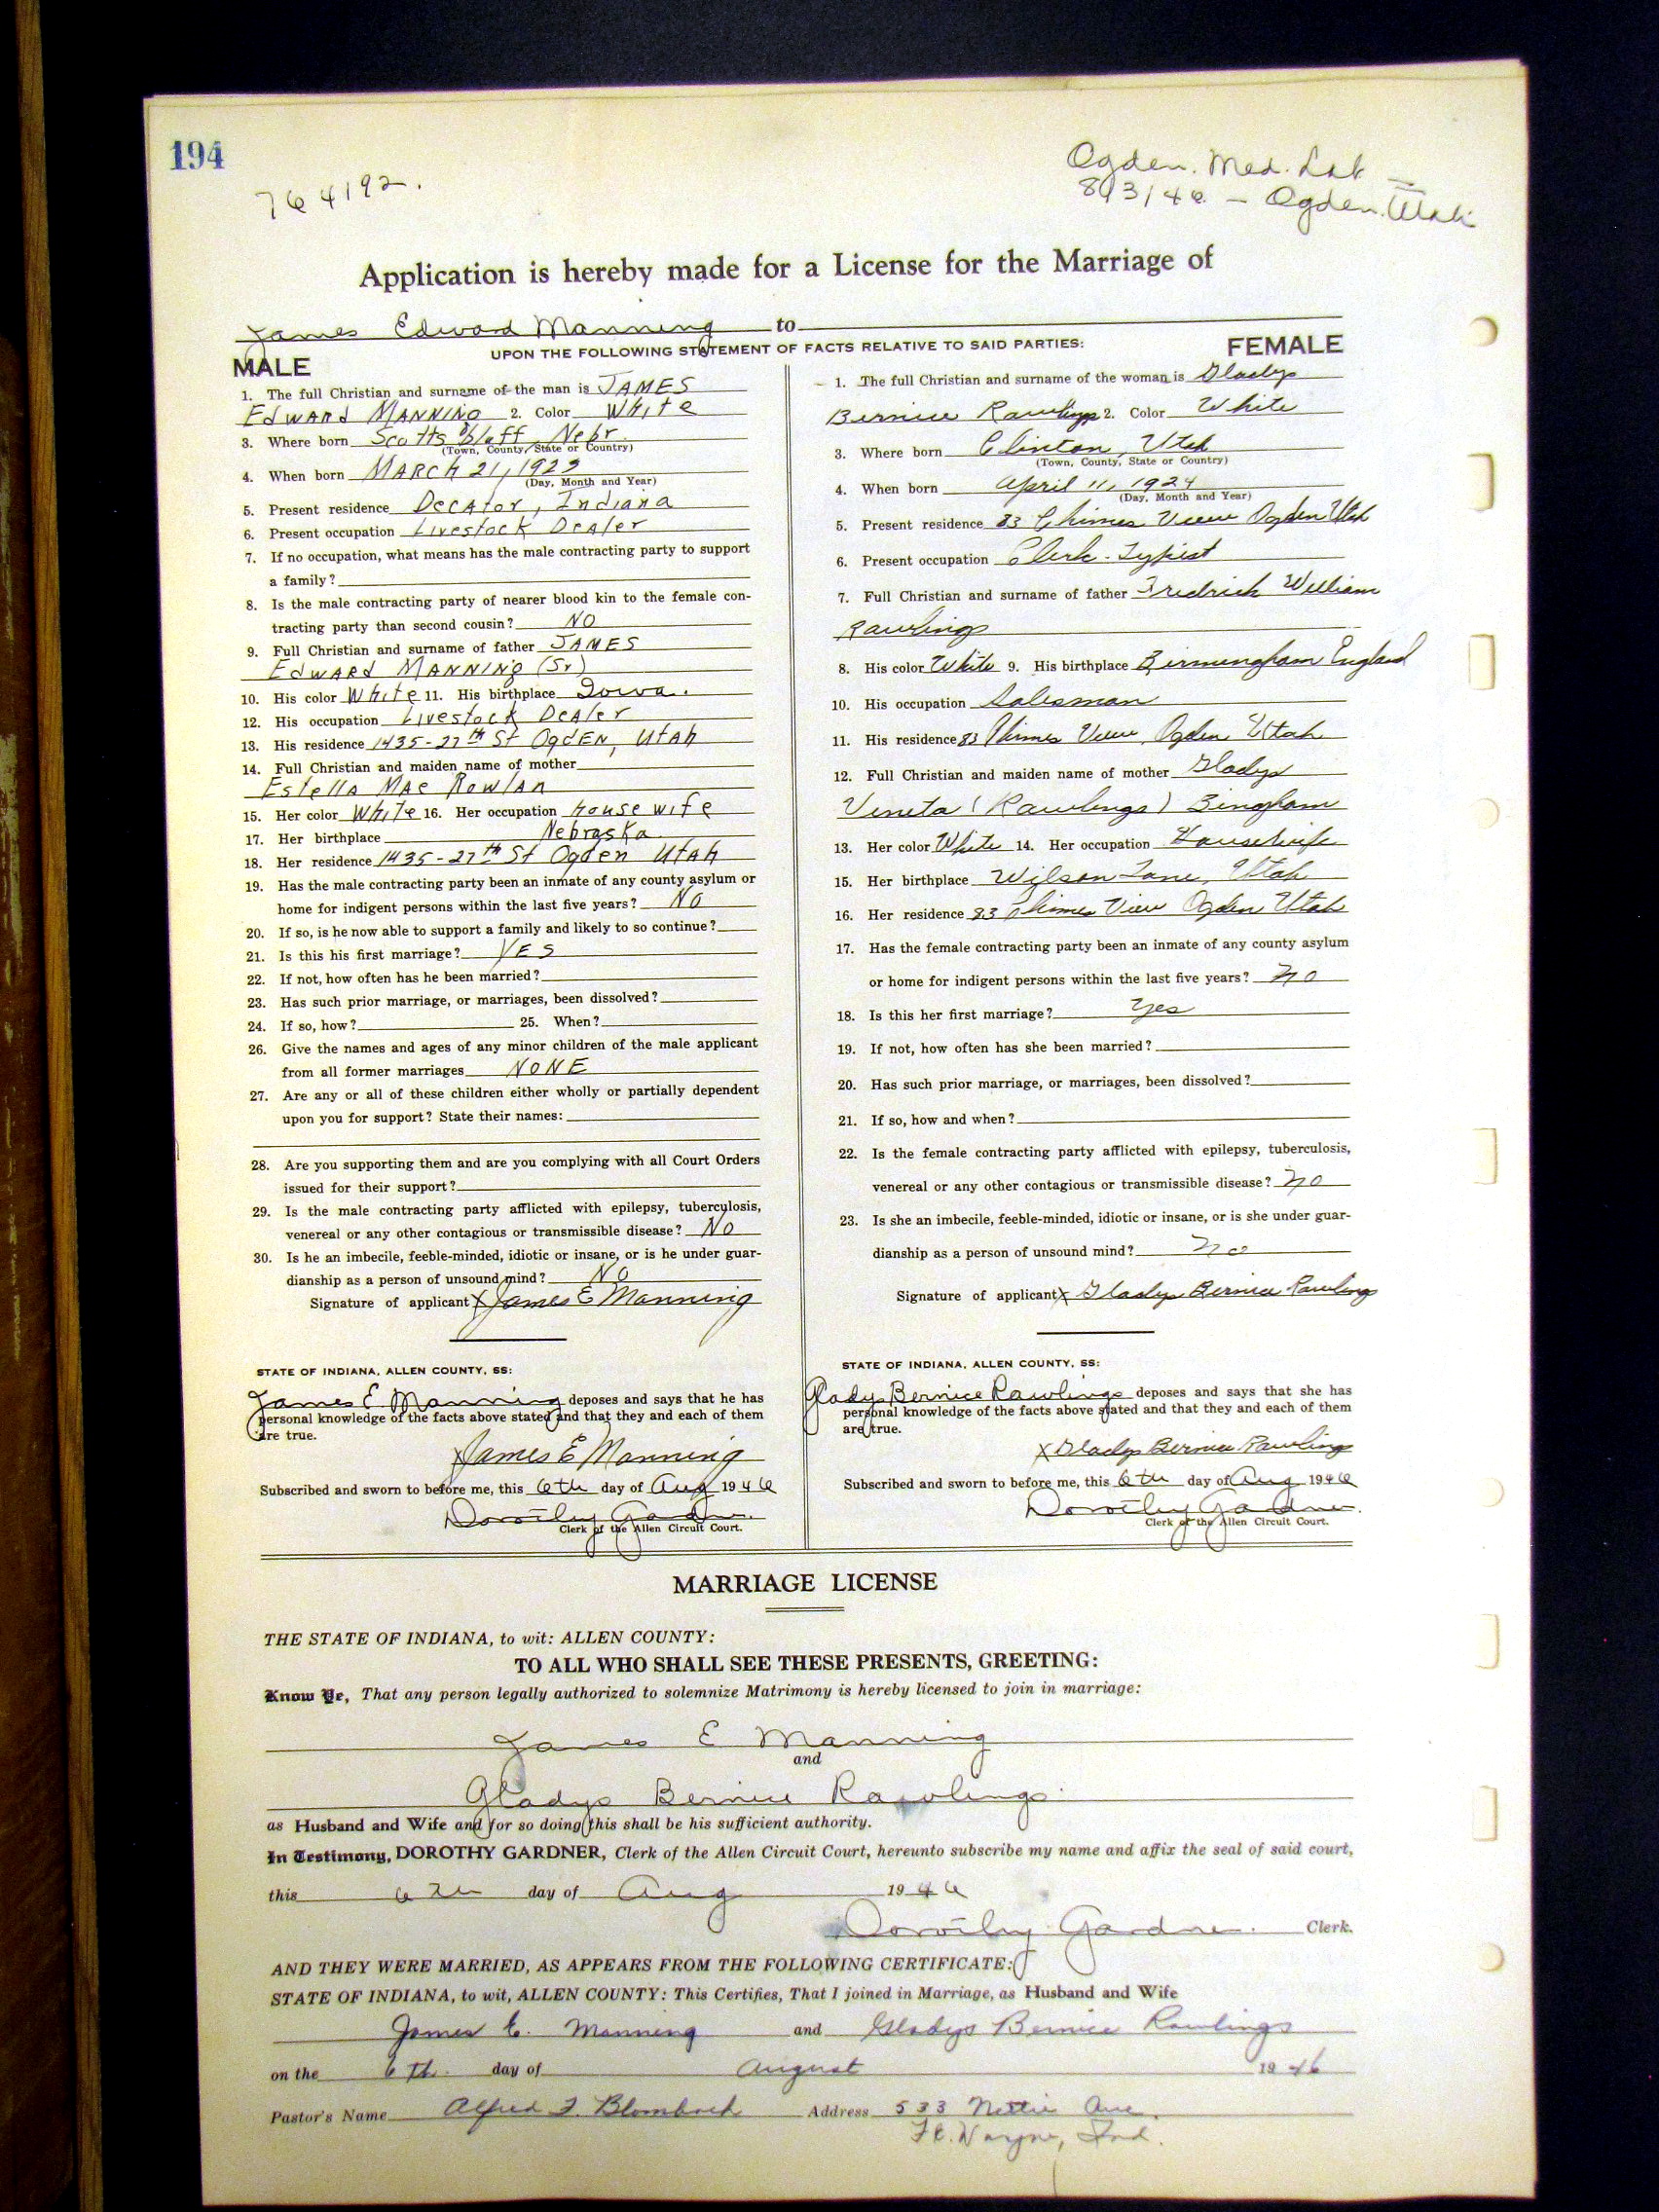 194
764192.
Ogden. Med. Lab —
8/3/46 — Ogden. Utah
Application is hereby made for a License for the Marriage of
James Edward Manning to
UPON THE FOLLOWING STATEMENT OF FACTS RELATIVE TO SAID PARTIES:
MALE
1. The full Christian and surname of the man is JAMES
EDWARD MANNING 2. Color White
3. Where born Scotts bluff, Nebr.
(Town, County, State or Country)
4. When born MARCH 21, 1923
(Day, Month and Year)
5. Present residence DecAtor, Indiana
6. Present occupation Livestock DeAler
7. If no occupation, what means has the male contracting party to support
a family?
8. Is the male contracting party of nearer blood kin to the female con-
tracting party than second cousin? NO
9. Full Christian and surname of father JAMES
EDWARD MANNING (Sr)
10. His color White 11. His birthplace Iowa.
12. His occupation Livestock DeAler
13. His residence 1435-27th St OgdEN, UtAh
14. Full Christian and maiden name of mother
EstellA MAe RowlAn
15. Her color White 16. Her occupation house wife
17. Her birthplace Nebraska
18. Her residence 1435-27th St Ogden UtAh
19. Has the male contracting party been an inmate of any county asylum or
home for indigent persons within the last five years? No
20. If so, is he now able to support a family and likely to so continue?
21. Is this his first marriage? YES
22. If not, how often has he been married?
23. Has such prior marriage, or marriages, been dissolved?
24. If so, how? 25. When?
26. Give the names and ages of any minor children of the male applicant
from all former marriages NONE
27. Are any or all of these children either wholly or partially dependent
upon you for support? State their names:
28. Are you supporting them and are you complying with all Court Orders
issued for their support?
29. Is the male contracting party afflicted with epilepsy, tuberculosis,
venereal or any other contagious or transmissible disease? No
30. Is he an imbecile, feeble-minded, idiotic or insane, or is he under guar-
dianship as a person of unsound mind? NO
Signature of applicant X James E Manning
STATE OF INDIANA, ALLEN COUNTY, SS:
James E Manning deposes and says that he has
personal knowledge of the facts above stated and that they and each of them
are true.
X James E Manning
Subscribed and sworn to before me, this 6th day of Aug 1946
Dorothy Gardner.
Clerk of the Allen Circuit Court.
FEMALE
1. The full Christian and surname of the woman is Gladys
Bernice Rawlings 2. Color White
3. Where born Clinton, Utah
(Town, County, State or Country)
4. When born April 11, 1924
(Day, Month and Year)
5. Present residence 83 Chimes View Ogden Utah
6. Present occupation Clerk-Typist
7. Full Christian and surname of father Fredrick William
Rawlings
8. His color White 9. His birthplace Birmingham England
10. His occupation Salesman
11. His residence 83 Chimes View, Ogden Utah
12. Full Christian and maiden name of mother Gladys
Veneta (Rawlings) Bingham
13. Her color White 14. Her occupation Housewife
15. Her birthplace Wilson Lane, Utah
16. Her residence 83 Chimes View Ogden Utah
17. Has the female contracting party been an inmate of any county asylum
or home for indigent persons within the last five years? no
18. Is this her first marriage? Yes
19. If not, how often has she been married?
20. Has such prior marriage, or marriages, been dissolved?
21. If so, how and when?
22. Is the female contracting party afflicted with epilepsy, tuberculosis,
venereal or any other contagious or transmissible disease? no
23. Is she an imbecile, feeble-minded, idiotic or insane, or is she under guar-
dianship as a person of unsound mind? no
Signature of applicant X Gladys Bernice Rawlings
STATE OF INDIANA, ALLEN COUNTY, SS:
Gladys Bernice Rawlings deposes and says that she has
personal knowledge of the facts above stated and that they and each of them
are true.
X Gladys Bernice Rawlings
Subscribed and sworn to before me, this 6th day of Aug 1946
Dorothy Gardner.
Clerk of the Allen Circuit Court.
MARRIAGE LICENSE
THE STATE OF INDIANA, to wit: ALLEN COUNTY:
TO ALL WHO SHALL SEE THESE PRESENTS, GREETING:
Know Ye, That any person legally authorized to solemnize Matrimony is hereby licensed to join in marriage:
James E Manning
and
Gladys Bernice Rawlings.
as Husband and Wife and for so doing this shall be his sufficient authority.
In Testimony, DOROTHY GARDNER, Clerk of the Allen Circuit Court, hereunto subscribe my name and affix the seal of said court,
this 6th day of Aug 1946
Dorothy Gardner. Clerk.
AND THEY WERE MARRIED, AS APPEARS FROM THE FOLLOWING CERTIFICATE:
STATE OF INDIANA, to wit, ALLEN COUNTY: This Certifies, That I joined in Marriage, as Husband and Wife
James E. Manning and Gladys Bernice Rawlings
on the 6th. day of August 1946
Pastor's Name Alfred J. Blomback Address 533 Nettie Ave.
Ft. Wayne, Ind.